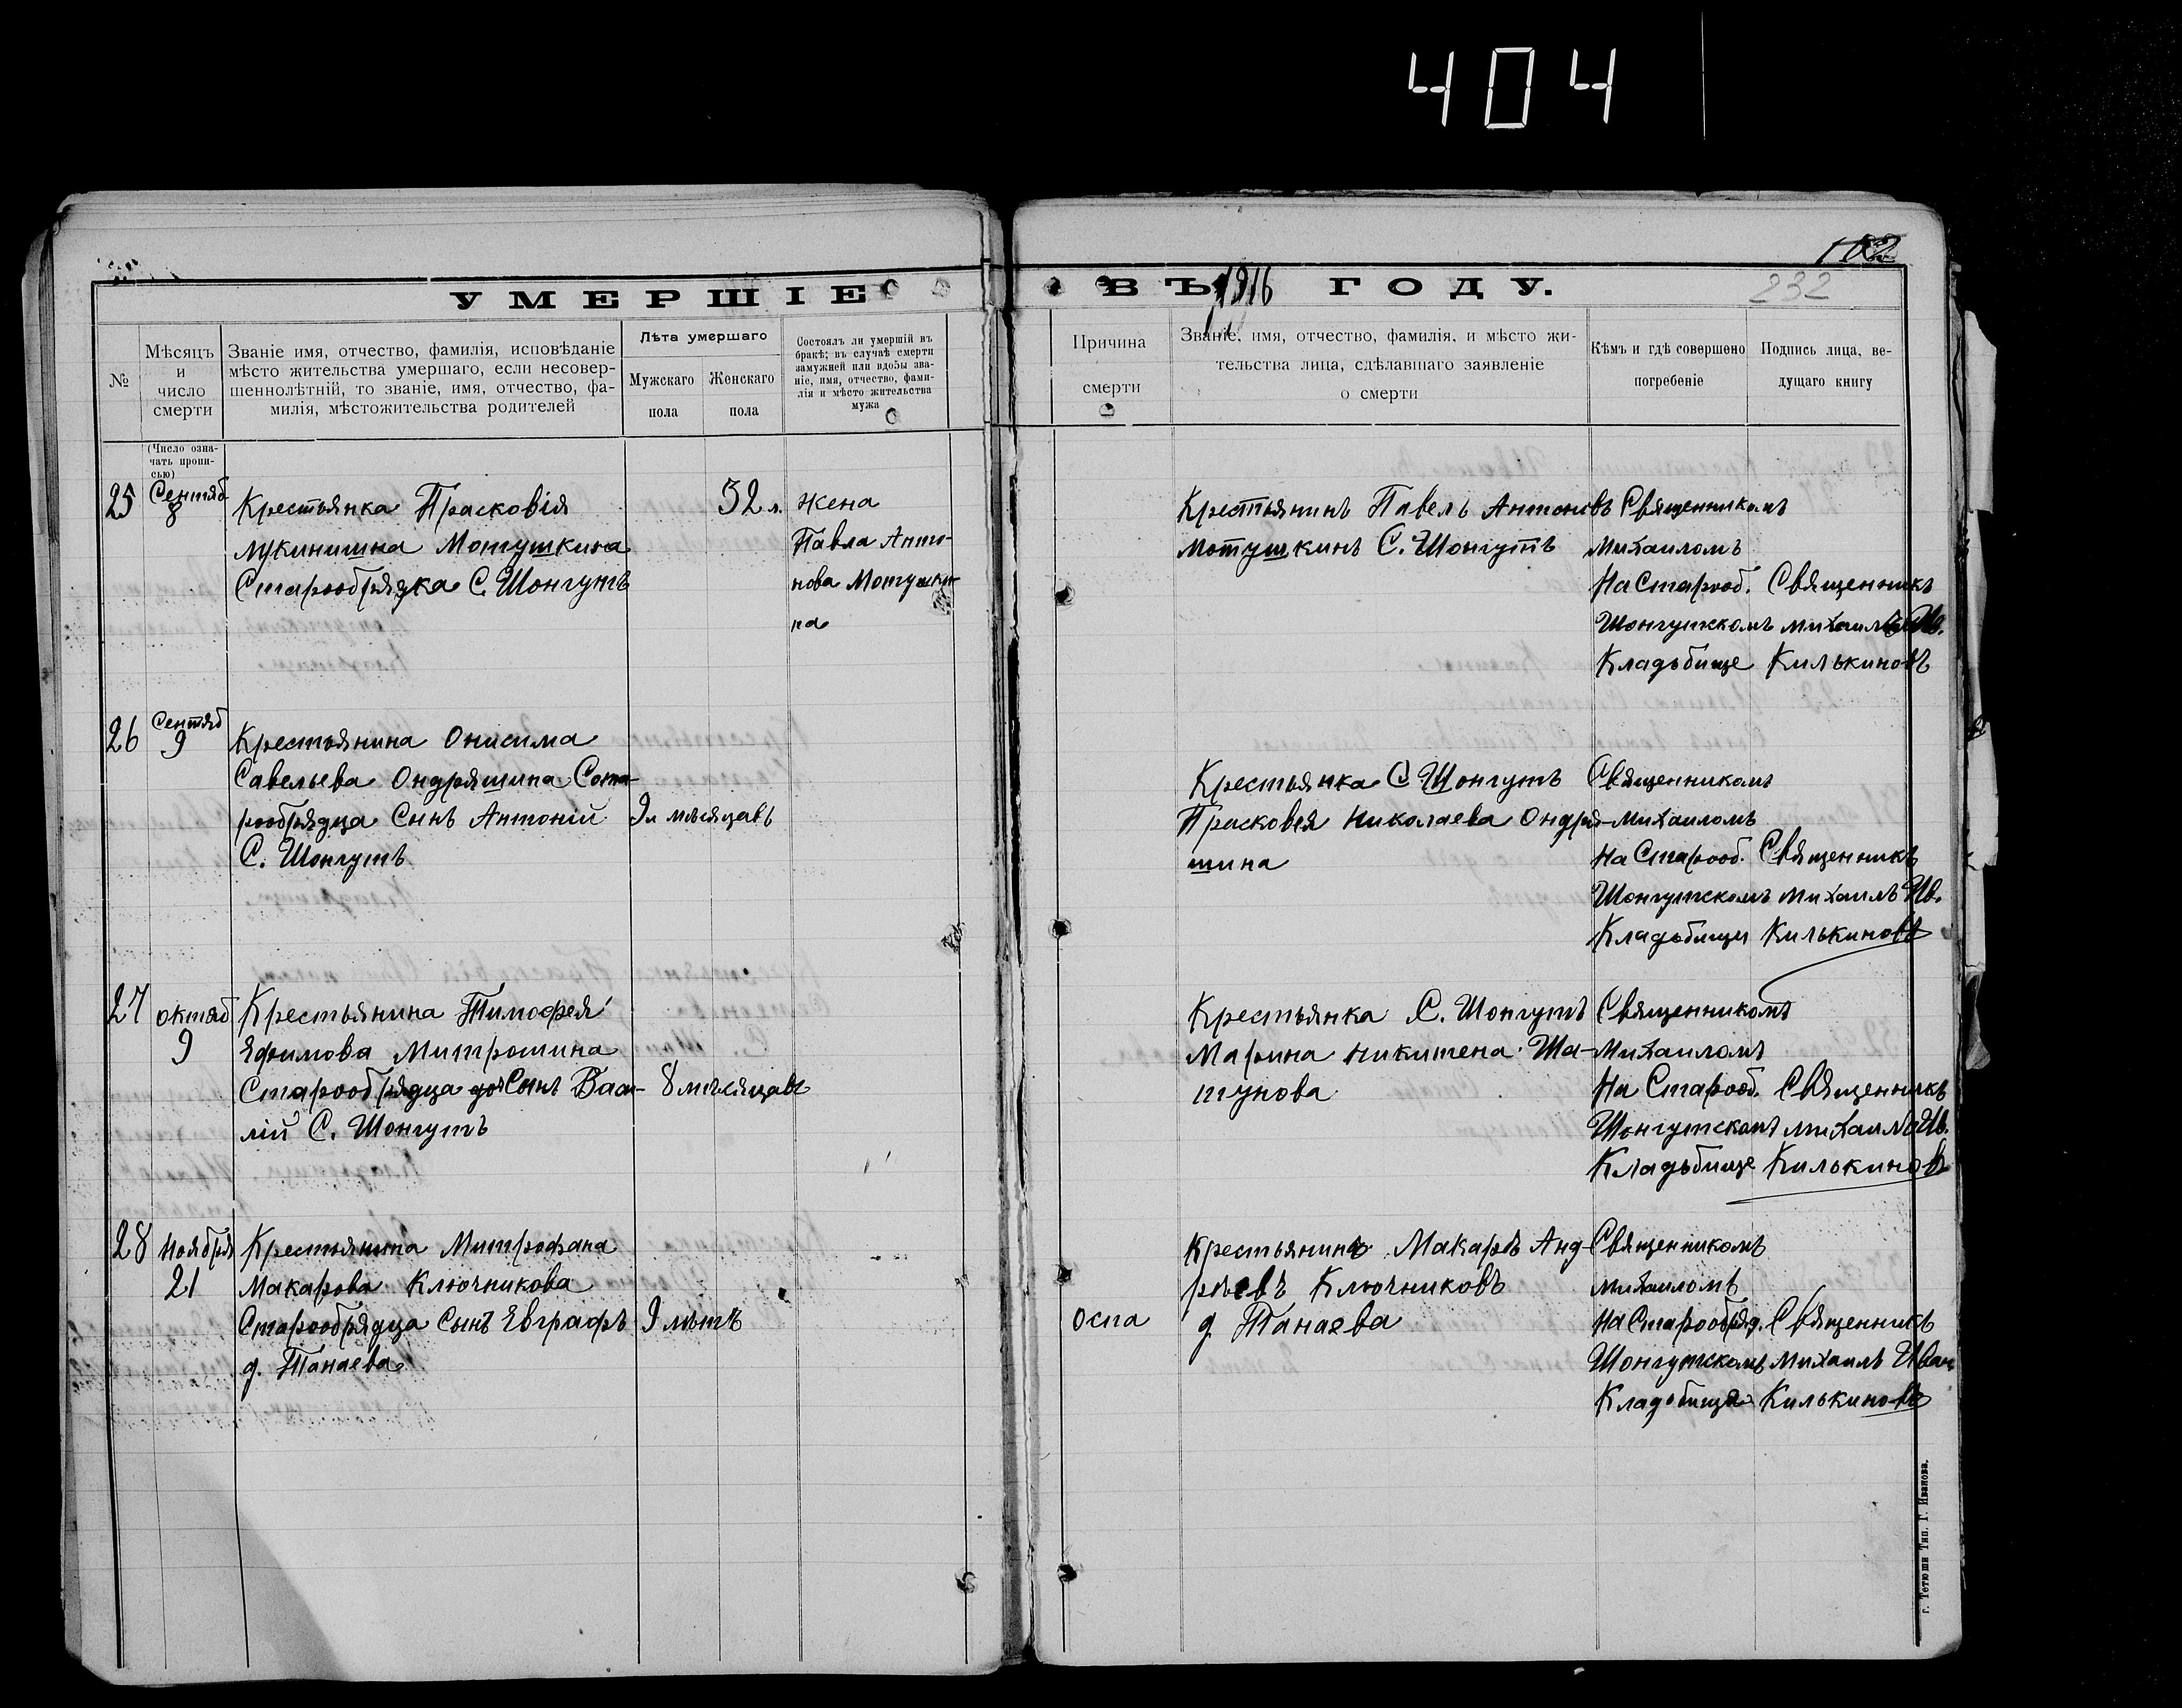 404
102
232
УМЕРШІЕ ВЪ 1916 ГОДУ.
№
Мѣсяцъ и число смерти
Званіе имя, отчество, фамилія, исповѣданіе
мѣсто жительства умершаго, если несовер-
шеннолѣтній, то званіе, имя, отчество, фа-
милія, мѣстожительства родителей
Лѣта умершаго
Мужскаго пола
Женскаго пола
Состоялъ ли умершій въ
бракѣ; въ случаѣ смерти
замужней или вдовы зва-
ніе, имя, отчество, фами-
лія и мѣсто жительства
мужа
Причина смерти
Званіе, имя, отчество, фамилія, и мѣсто жи-
тельства лица, сдѣлавшаго заявленіе
о смерти
Кѣмъ и гдѣ совершено
погребеніе
Подпись лица, ве-
дущаго книгу
(Число озна-
чать пропи-
сью)
25
Сентяб
8
Крестьянка Прасковія
Лукинишна Мотушкина
Старообрядка С. Шонгутъ
52 л.
жена
Павла Анто-
нова Мотушки-
на
Крестьянинъ Павелъ Антоновъ
Мотушкинъ С. Шонгутъ
Священникомъ
Михаиломъ
На Старооб.
Шонгутскомъ
Кладьбище
Священникъ
Михаилъ Ив.
Килькиновъ
26
Сентяб
9
Крестьянина Онисима
Савельева Ондряшина Ста-
рообрядца Сынъ Антоній
С. Шонгутъ
9 мѣсяцавъ
Крестьянка С Шонгутъ
Прасковея Николаева Ондря-
шина
Священникомъ
Михаиломъ
На Старооб.
Шонгутскомъ
Кладьбищи
Священникъ
Михаилъ Ив.
Килькиновъ
27
октяб
9
Крестьянина Тимофея
Яфимова Митрошина
Старообрядца Сынъ Васи-
лій С. Шонгутъ
8 мѣсяцавъ
Крестьянка С. Шонгутъ
Марина Никитена Ша-
тунова
Священникомъ
Михаиломъ
На Старооб.
Шонгутскомъ
Кладьбище
Священникъ
Михаилъ Ив.
Килькиновъ
28
Ноября
21
Крестьянина Митрофана
Макарова Ключникова
Старообрядца Сынъ Евграфъ
д. Танаева
9 лѣтъ
Оспа
Крестьянинъ Макаръ Анд-
рѣевъ Ключниковъ
д. Танаева
Священникомъ
Михаиломъ
На Старообряд.
Шонгутскомъ
Кладбища
Священникъ
Михаилъ Иван
Килькиновъ
г. Тетюши Тип. Г. Иванова.